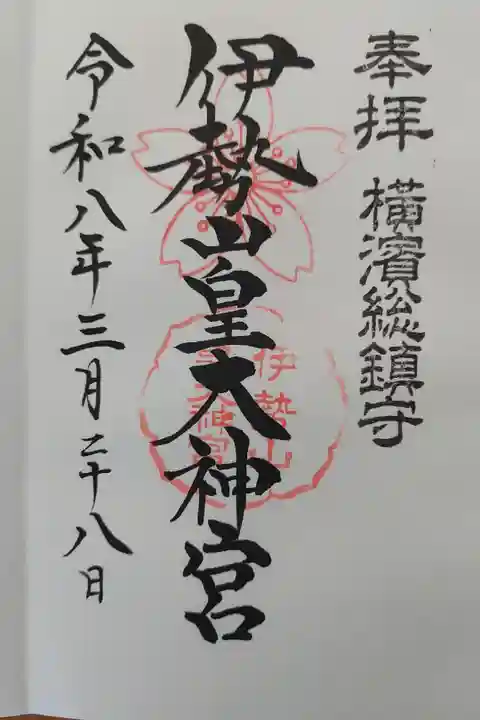 奉拝 横濱総鎮守
伊勢山皇大神宮
伊勢山
皇大神宮
令和八年三月二十八日